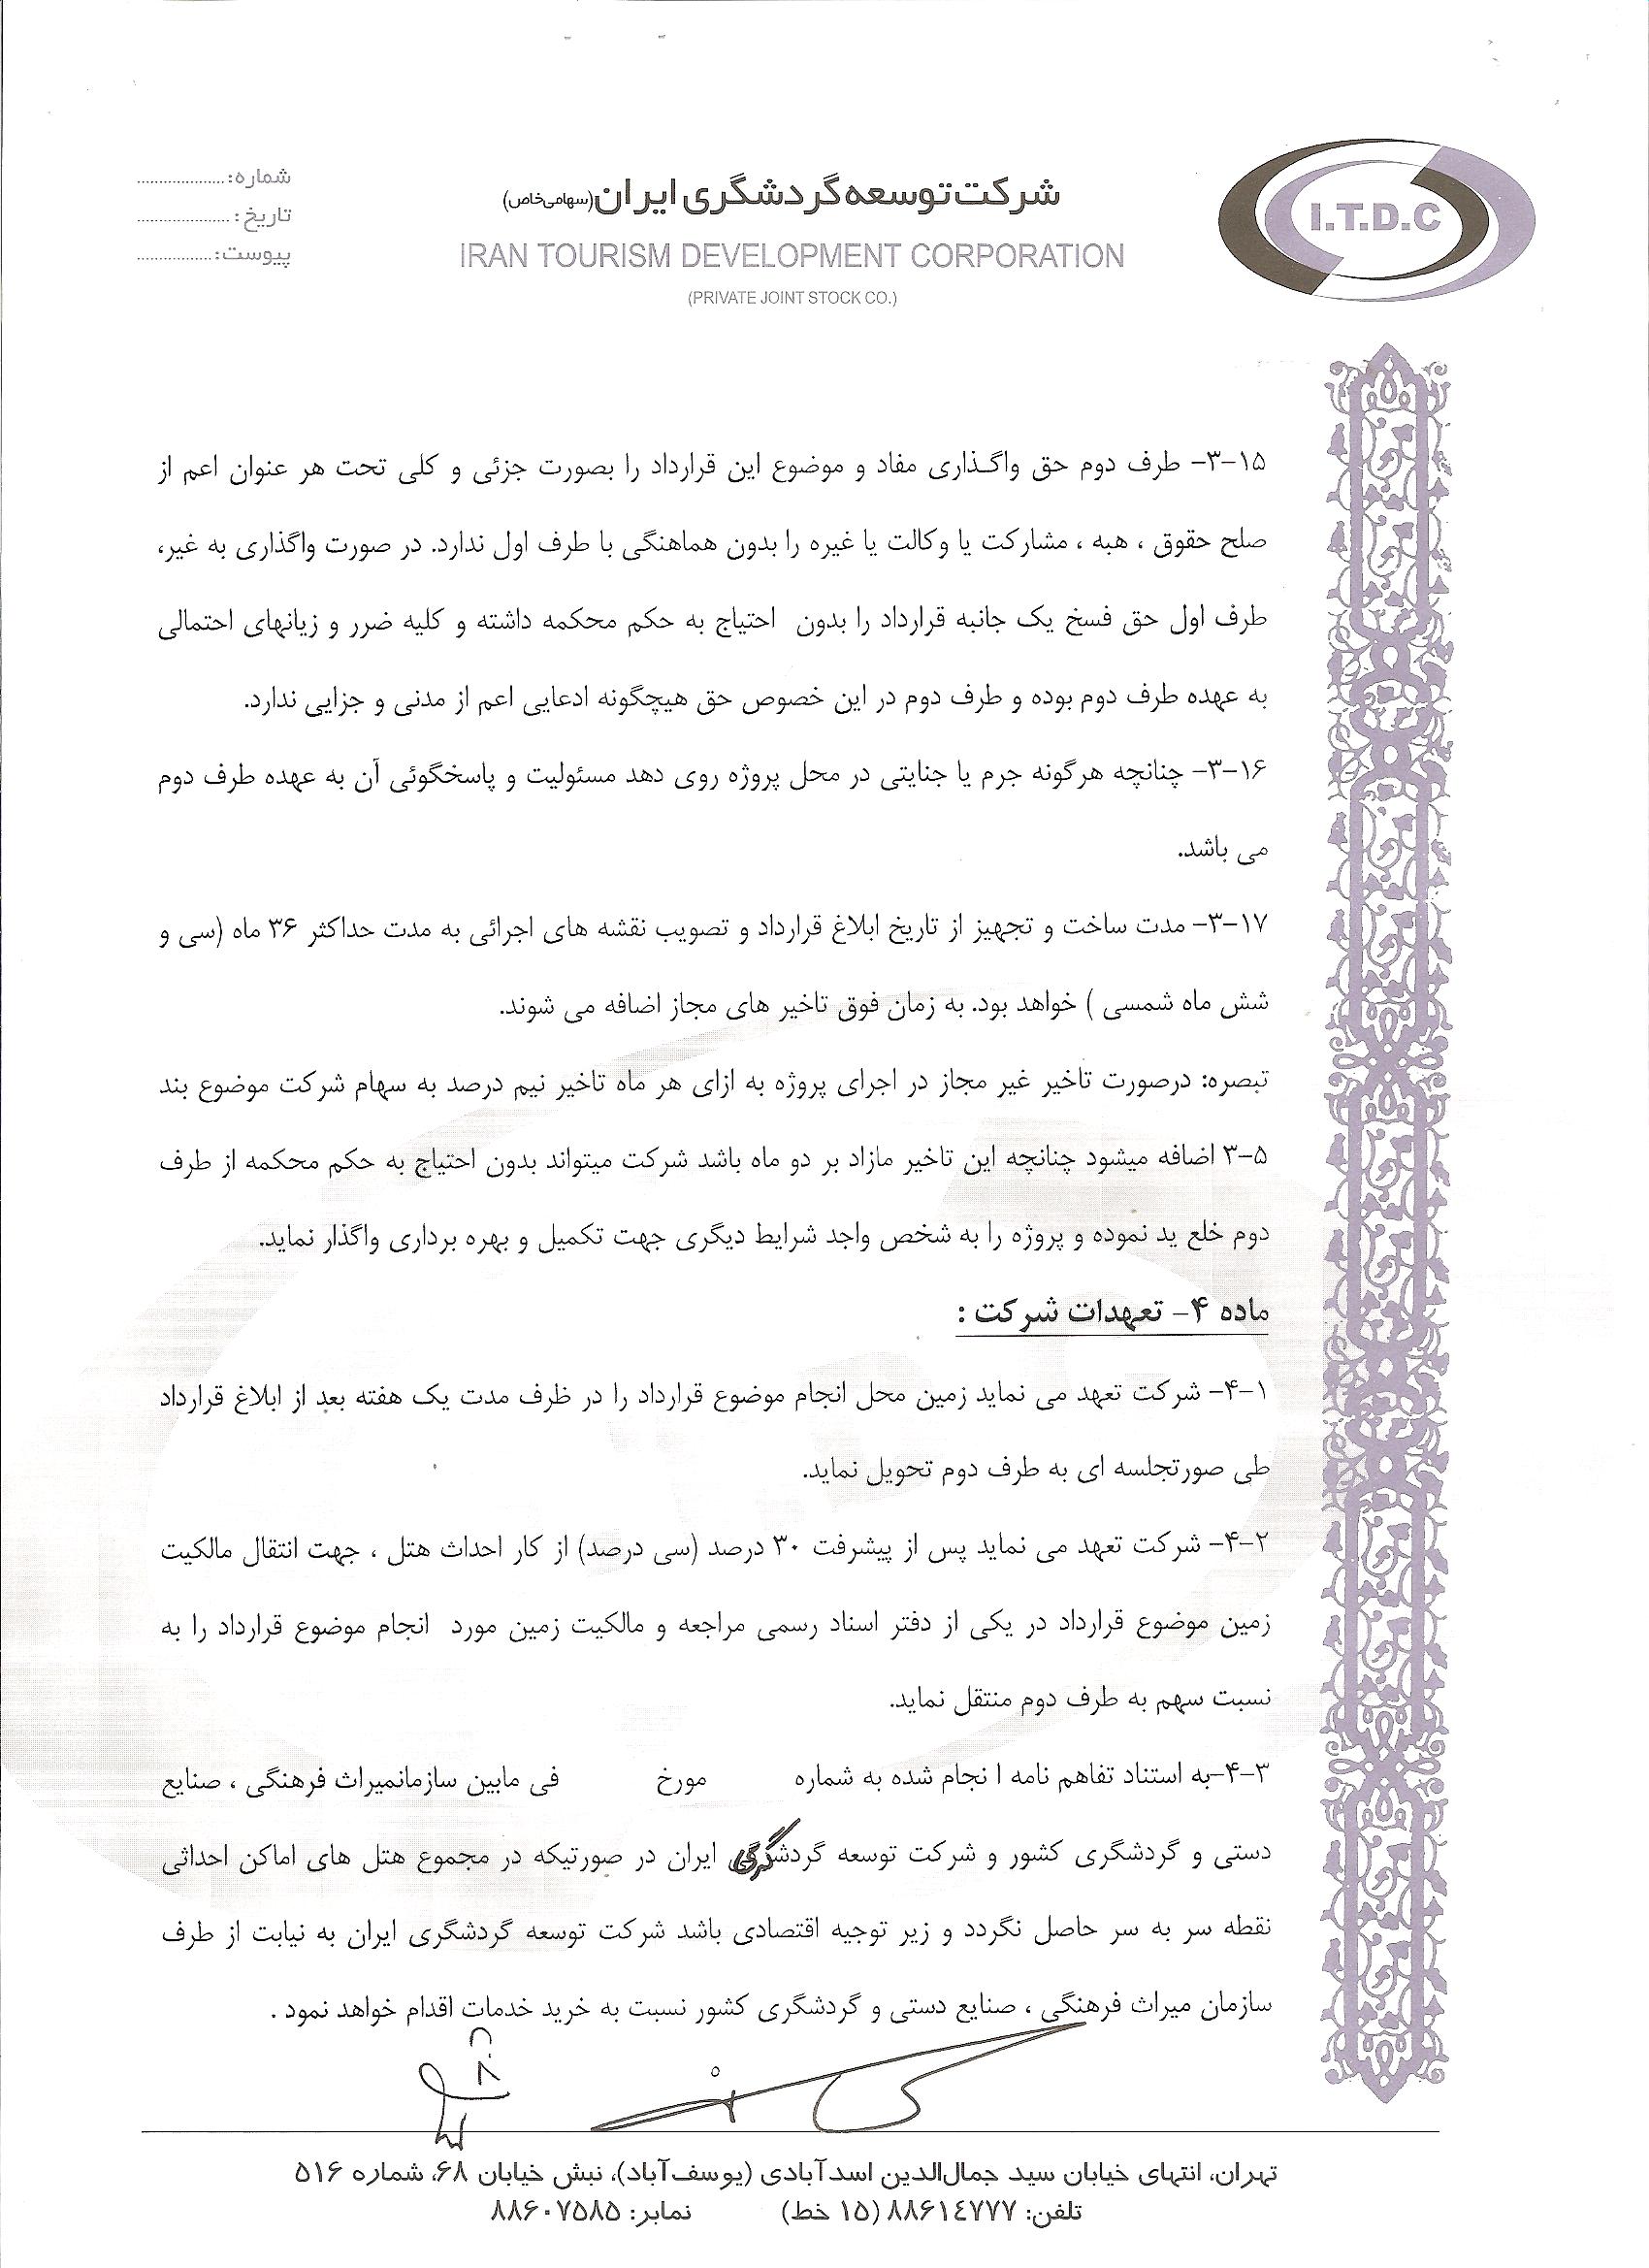 شماره:....................
تاریخ: ....................
پیوست:.................
شرکت توسعه گردشگری ایران(سهامی خاص)
IRAN TOURISM DEVELOPMENT CORPORATION
(PRIVATE JOINT STOCK CO.)
I.T.D.C
۳-۱۵- طرف دوم حق واگذاری مفاد و موضوع این قرارداد را بصورت جزئی و کلی تحت هر عنوان اعم از
صلح حقوق ، هبه ، مشارکت یا وکالت یا غیره را بدون هماهنگی با طرف اول ندارد. در صورت واگذاری به غیر،
طرف اول حق فسخ یک جانبه قرارداد را بدون احتیاج به حکم محکمه داشته و کلیه ضرر و زیانهای احتمالی
به عهده طرف دوم بوده و طرف دوم در این خصوص حق هیچگونه ادعایی اعم از مدنی و جزایی ندارد.
۳-۱۶- چنانچه هرگونه جرم یا جنایتی در محل پروژه روی دهد مسئولیت و پاسخگوئی آن به عهده طرف دوم
می باشد.
۳-۱۷- مدت ساخت و تجهیز از تاریخ ابلاغ قرارداد و تصویب نقشه های اجرائی به مدت حداکثر ۳۶ ماه (سی و
شش ماه شمسی ) خواهد بود. به زمان فوق تاخیر های مجاز اضافه می شوند.
تبصره: درصورت تاخیر غیر مجاز در اجرای پروژه به ازای هر ماه تاخیر نیم درصد به سهام شرکت موضوع بند
۳-۵ اضافه میشود چنانچه این تاخیر مازاد بر دو ماه باشد شرکت میتواند بدون احتیاج به حکم محکمه از طرف
دوم خلع ید نموده و پروژه را به شخص واجد شرایط دیگری جهت تکمیل و بهره برداری واگذار نماید.
ماده ۴- تعهدات شرکت :
۴-۱- شرکت تعهد می نماید زمین محل انجام موضوع قرارداد را در ظرف مدت یک هفته بعد از ابلاغ قرارداد
طی صورتجلسه ای به طرف دوم تحویل نماید.
۴-۲- شرکت تعهد می نماید پس از پیشرفت ۳۰ درصد (سی درصد) از کار احداث هتل ، جهت انتقال مالکیت
زمین موضوع قرارداد در یکی از دفتر اسناد رسمی مراجعه و مالکیت زمین مورد انجام موضوع قرارداد را به
نسبت سهم به طرف دوم منتقل نماید.
۴-۳-به استناد تفاهم نامه ا نجام شده به شماره مورخ فی مابین سازمانمیراث فرهنگی ، صنایع
دستی و گردشگری کشور و شرکت توسعه گردشگری ایران در صورتیکه در مجموع هتل های اماکن احداثی
نقطه سر به سر حاصل نگردد و زیر توجیه اقتصادی باشد شرکت توسعه گردشگری ایران به نیابت از طرف
سازمان میراث فرهنگی ، صنایع دستی و گردشگری کشور نسبت به خرید خدمات اقدام خواهد نمود .
تهران، انتهای خیابان سید جمال‌الدین اسدآبادی (یوسف‌آباد)، نبش خیابان ۶۸، شماره ۵۱۶
تلفن: ۸۸۶۱٤۷۷۷ (۱۵ خط) نمابر: ۸۸۶۰۷۵۸۵